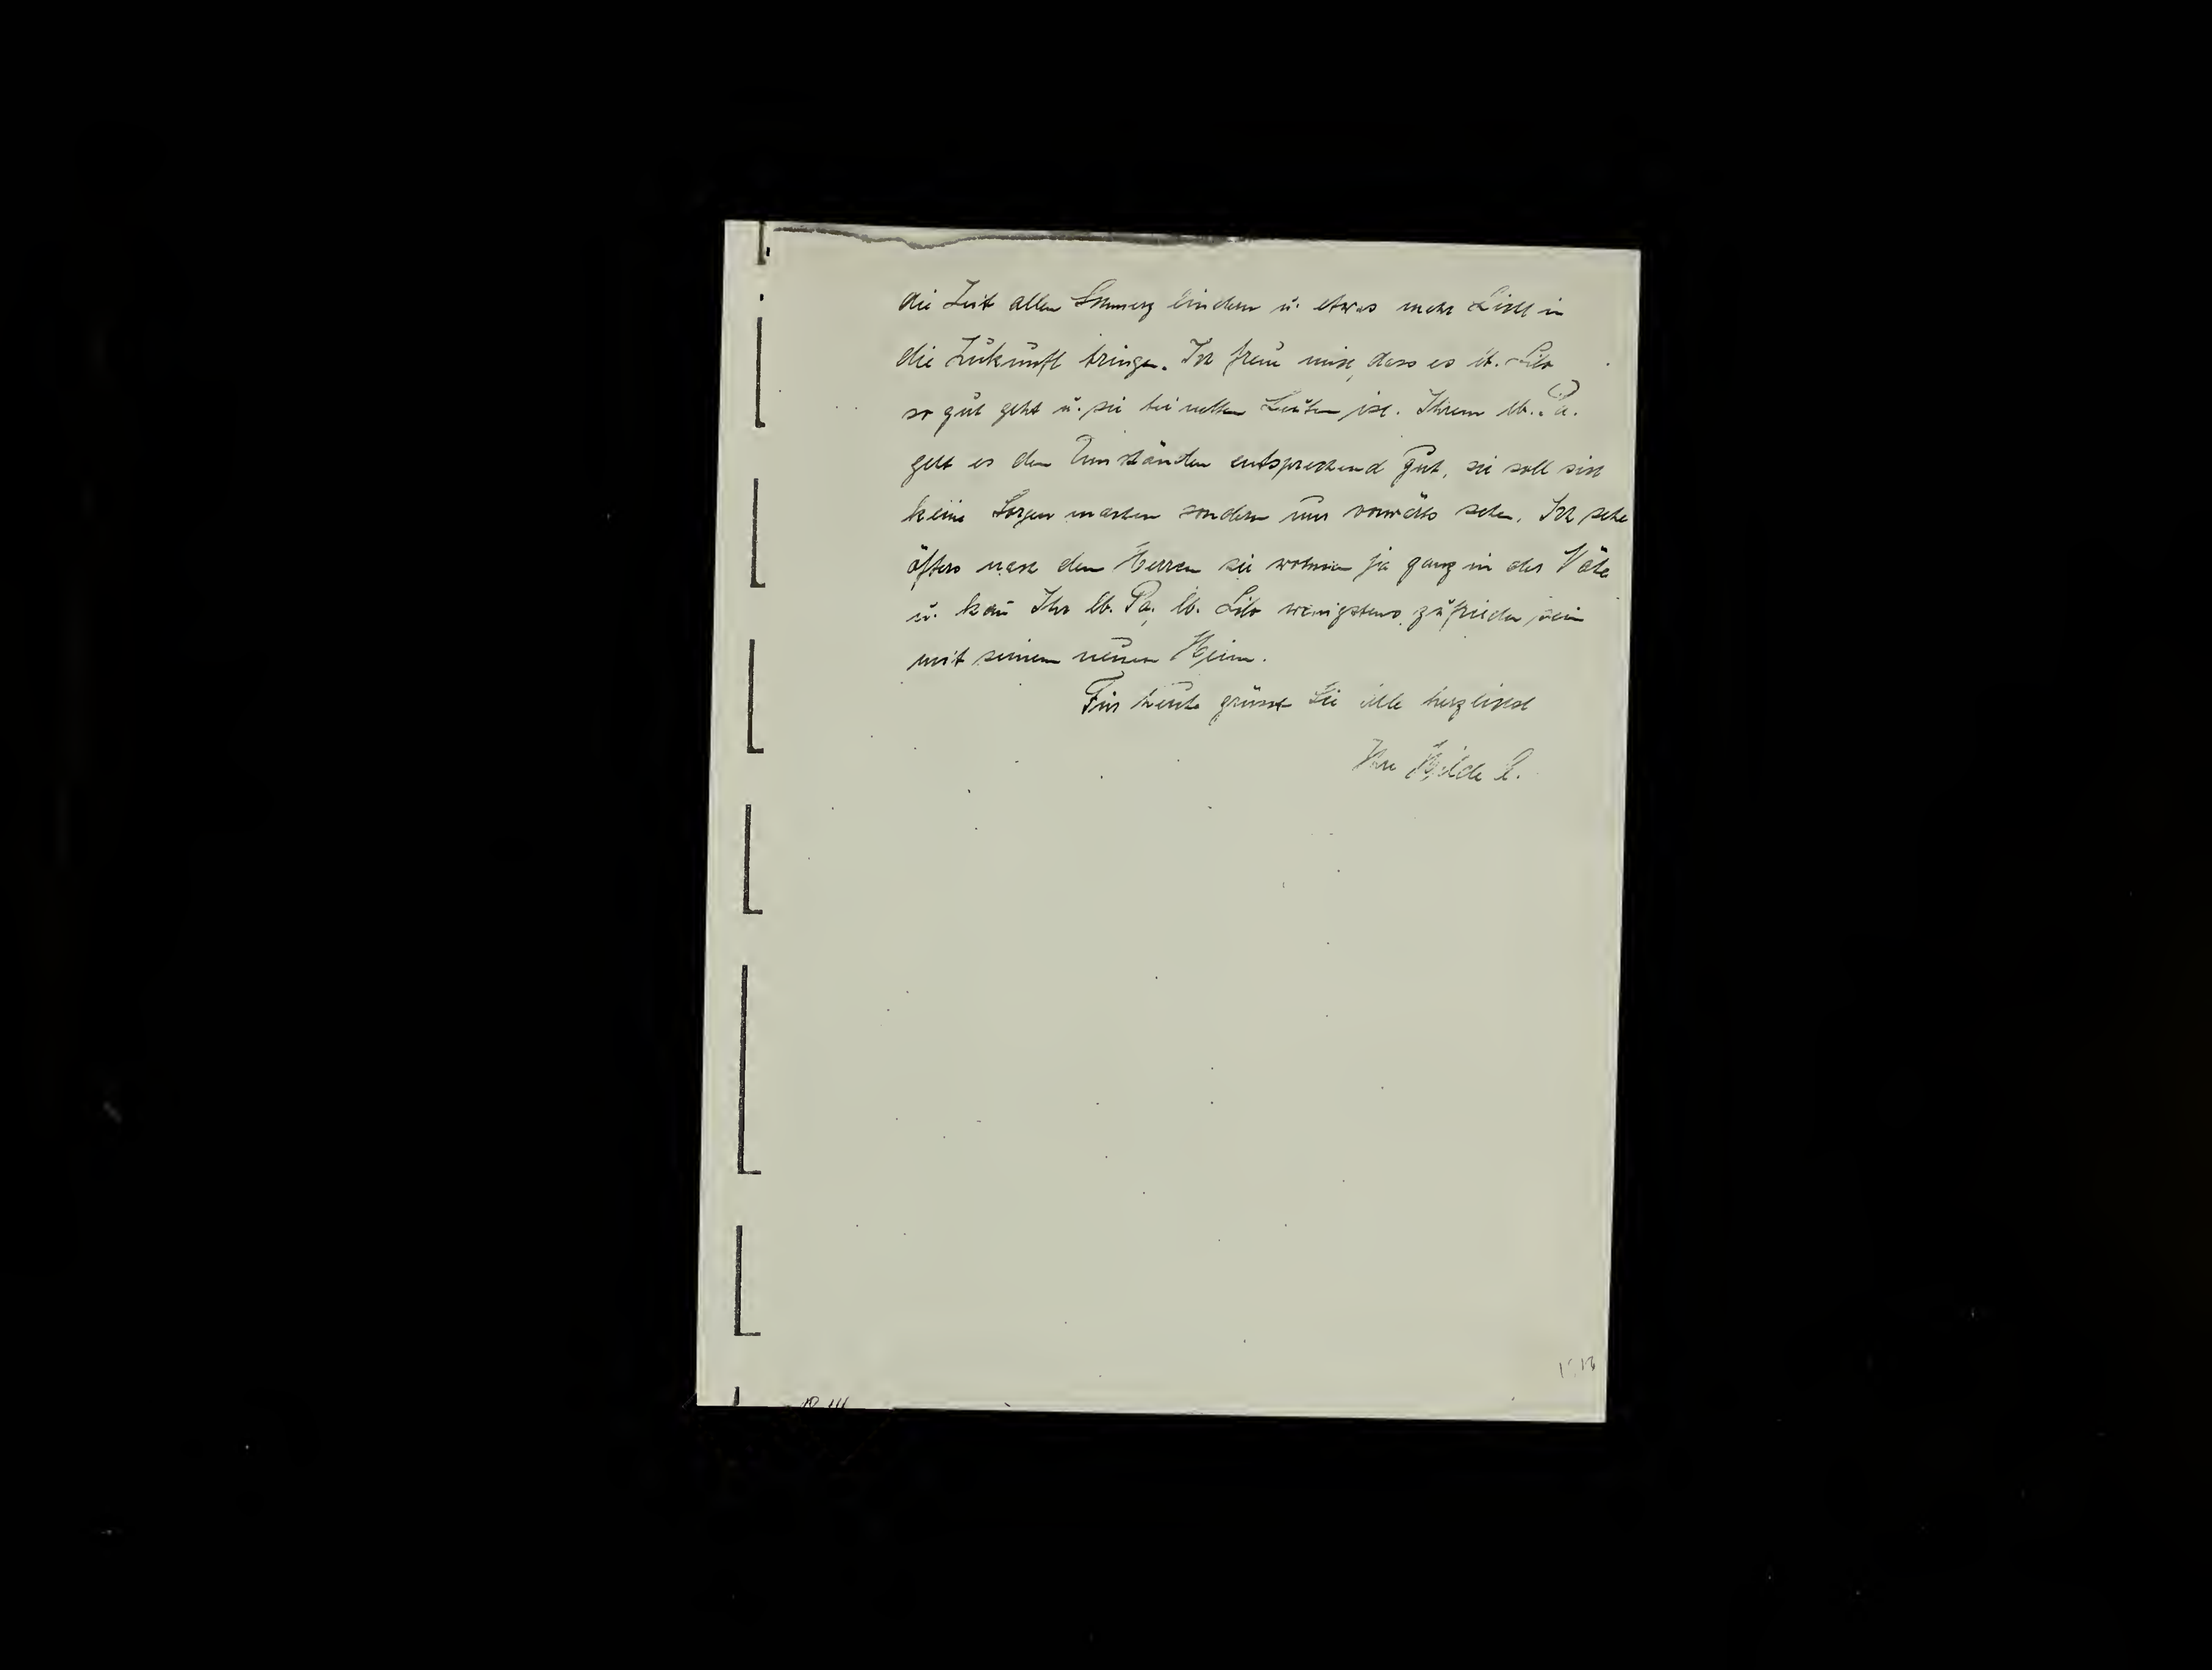 die Zeit allen Schmerz lindern u. etwas mehr Licht in
die Zukunft bringen. Ich freue mich, dass es lb. Lilo
so gut geht u. sie bei netten Leuten ist. Ihrem lb. Pa.
geht es den Umständen entsprechend gut, sie soll sich
keine Sorgen machen sondern nur vorwärts sehen. Ich sehe
öfters nach den Herren sie wohnen ja ganz in der Nähe
u. kan̄ Ihr lb. Pa, lb. Lilo wenigstens zufrieden sein
mit seinem neuen Heim.
Für heute grüsst Sie alle herzlichst
Ihre Hilde